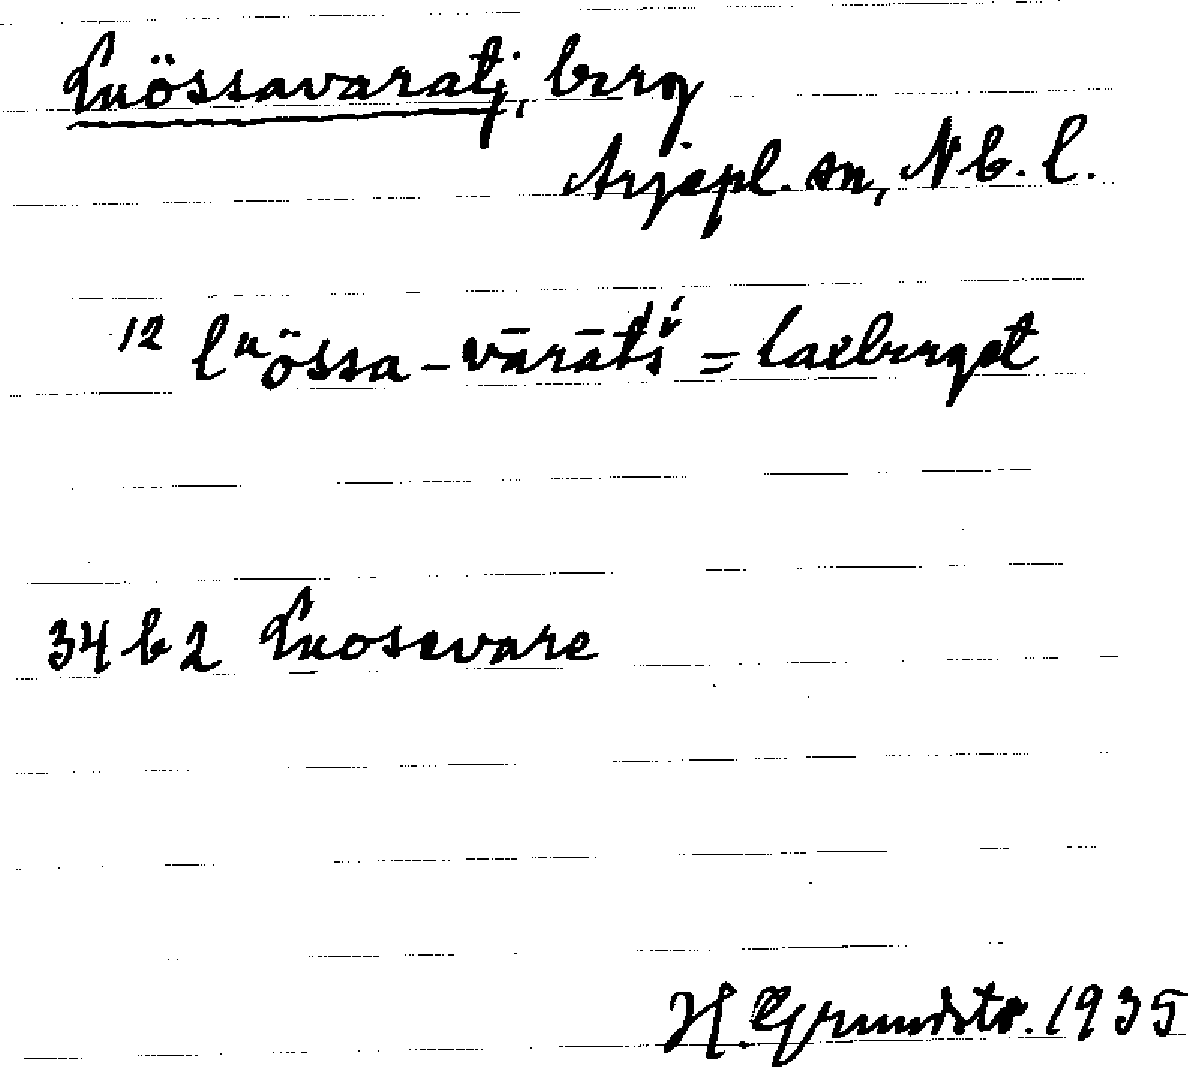 Luössavaratj, berg
Arjepl. sn, Nb. l.
12 lᵘössa-vārāťš́ = laxberget
34 b 2 Luosavare
H. Grundstr. 1935